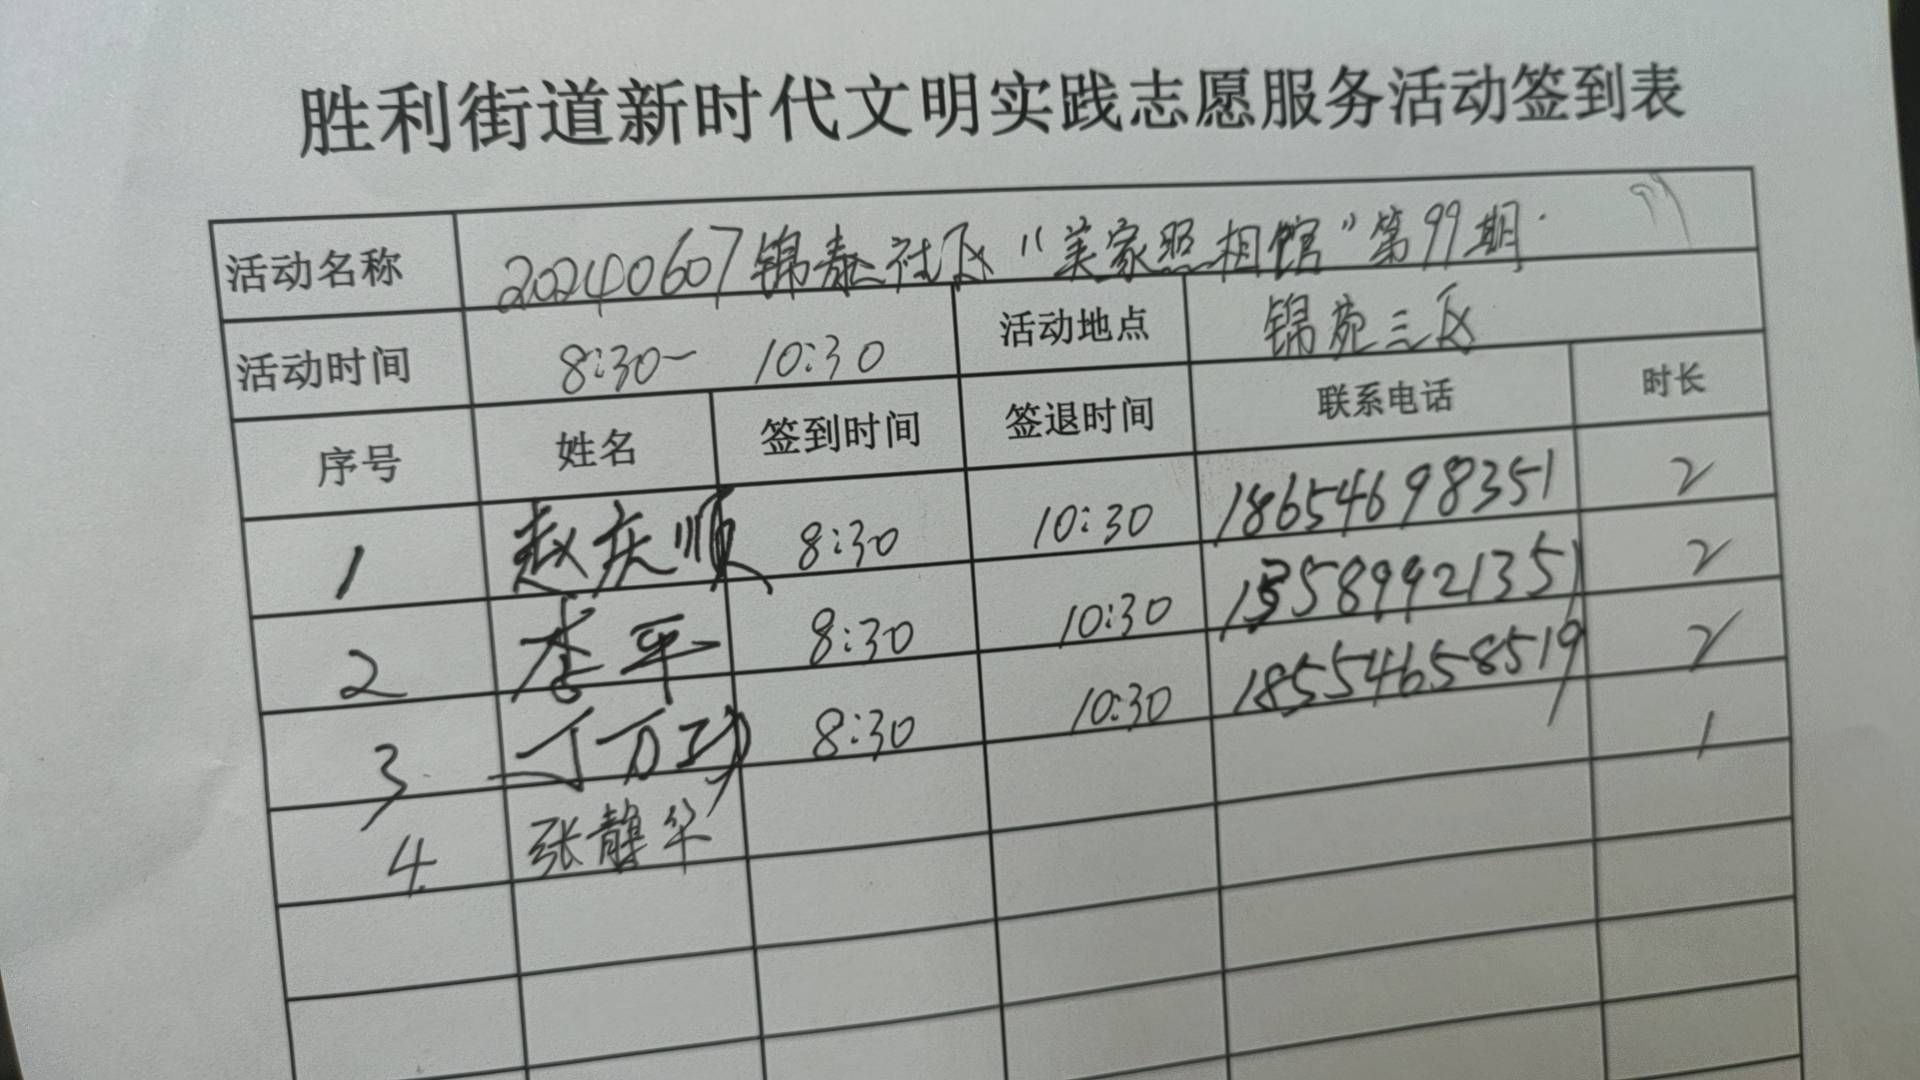 胜利街道新时代文明实践志愿服务活动签到表
活动名称 20240607锦泰社区“美家照相馆”第99期.
活动时间 8:30- 10:30 活动地点 锦苑三区
序号 姓名 签到时间 签退时间 联系电话 时长
1 赵庆顺 8:30 10:30 18654698351 2
2 李平 8:30 10:30 13589921351 2
3 丁万功 8:30 10:30 18554658519 2
4. 张静华 1